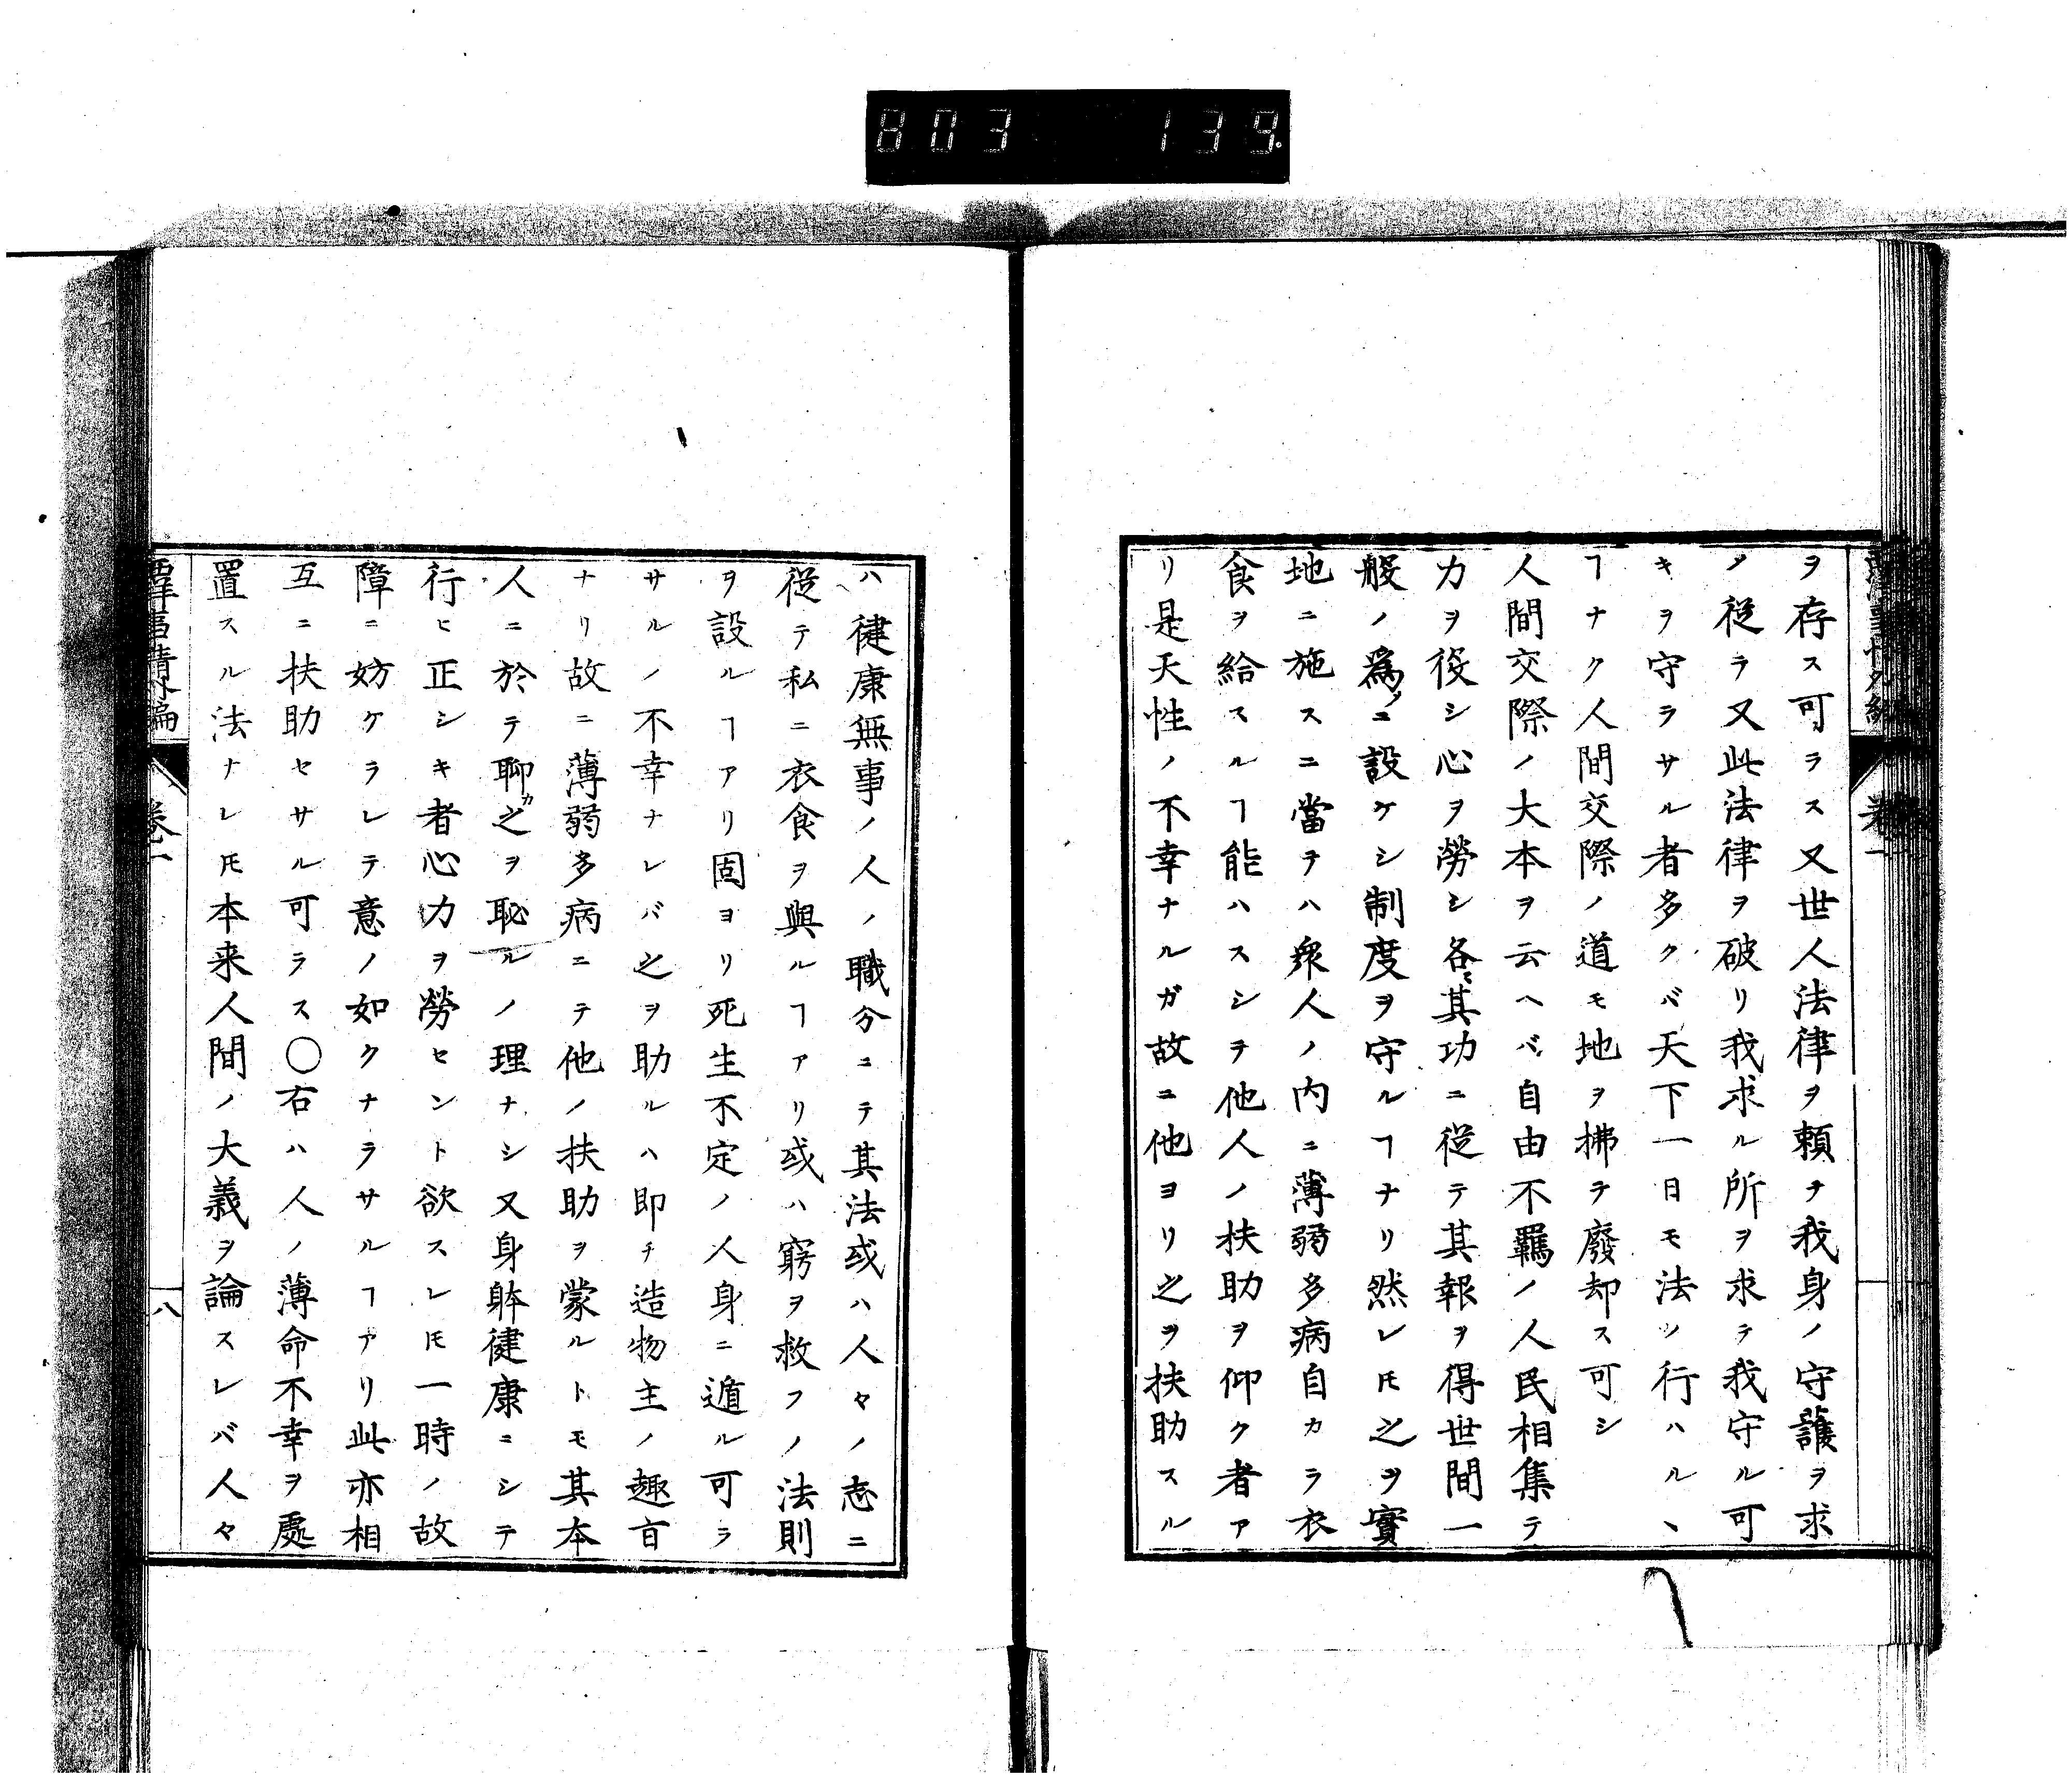 803 139
ヲ存ス可ラス又世人法律ヲ頼テ我身ノ守護ヲ求
メ從ラ又此法律ヲ破リ我求ル所ヲ求テ我守ル可
キヲ守ラサル者多クバ天下一日モ法ノ行ハルヽ
ヿナク人間交際ノ道モ地ヲ拂テ廢却ス可シ
人間交際ノ大本ヲ云ヘバ自由不羈ノ人民相集テ
力ヲ役シ心ヲ勞シ各〻其功ニ從テ其報ヲ得世間一
般ノ爲メニ設ケシ制度ヲ守ルヿナリ然レ𪜈之ヲ實
地ニ施スニ當テハ衆人ノ内ニ薄弱多病自カラ衣
食ヲ給スルヿ能ハスシテ他人ノ扶助ヲ仰ク者ア
リ是天性ノ不幸ナルガ故ニ他ヨリ之ヲ扶助スル
ハ健康無事ノ人ノ職分ニテ其法或ハ人々ノ志ニ
從テ私ニ衣食ヲ與ルヿアリ或ハ窮ヲ救フノ法則
ヲ設ルヿアリ固ヨリ死生不定ノ人身ニ遁ル可ラ
サルノ不幸ナレバ之ヲ助ルハ即チ造物主ノ趣㫖
ナリ故ニ薄弱多病ニテ他ノ扶助ヲ蒙ルトモ其本
人ニ於テ聊カ之ヲ恥ルノ理ナシ又身躰健康ニシテ
行ヒ正シキ者心力ヲ勞セント欲スレ𪜈一時ノ故
障ニ妨ケラレテ意ノ如クナラサルヿアリ此亦相
互ニ扶助セサル可ラス○右ハ人ノ薄命不幸ヲ處
置スル法ナレ𪜈本来人間ノ大義ヲ論スレバ人々
西洋事情外編
卷一
八